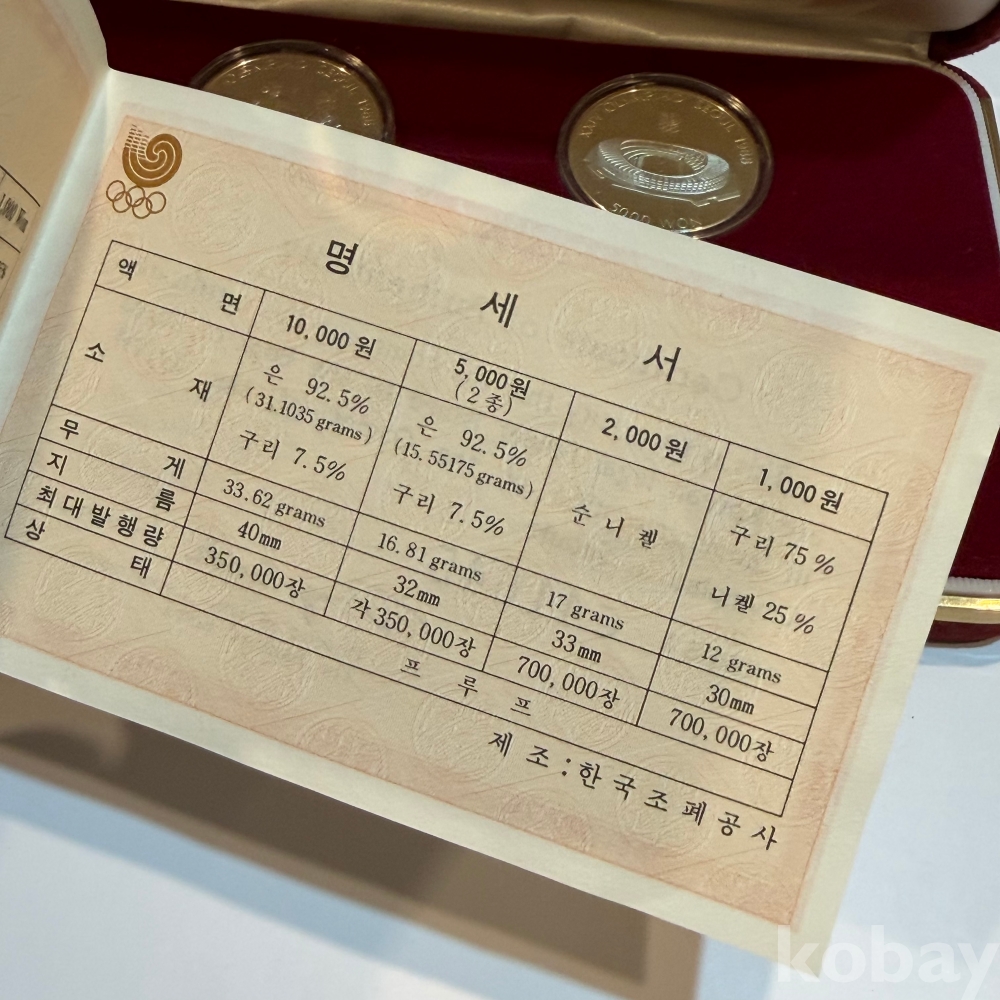 명 세 서
액 면 10,000원 5,000원 (2종) 2,000원 1,000원
소 재 은 92.5% (31.1035 grams) 구리 7.5% 은 92.5% (15.55175 grams) 구리 7.5% 순 니 켈 구리 75% 니켈 25%
무 게 33.62 grams 16.81 grams 17 grams 12 grams
지 름 40mm 32mm 33mm 30mm
최대발행량 350,000장 각 350,000장 700,000장 700,000장
상 태 프 루 프
제 조 : 한국조폐공사
1988
XXIV OLYMPIAD SEOUL 1988
5000 WON
1,000 Won
kobay